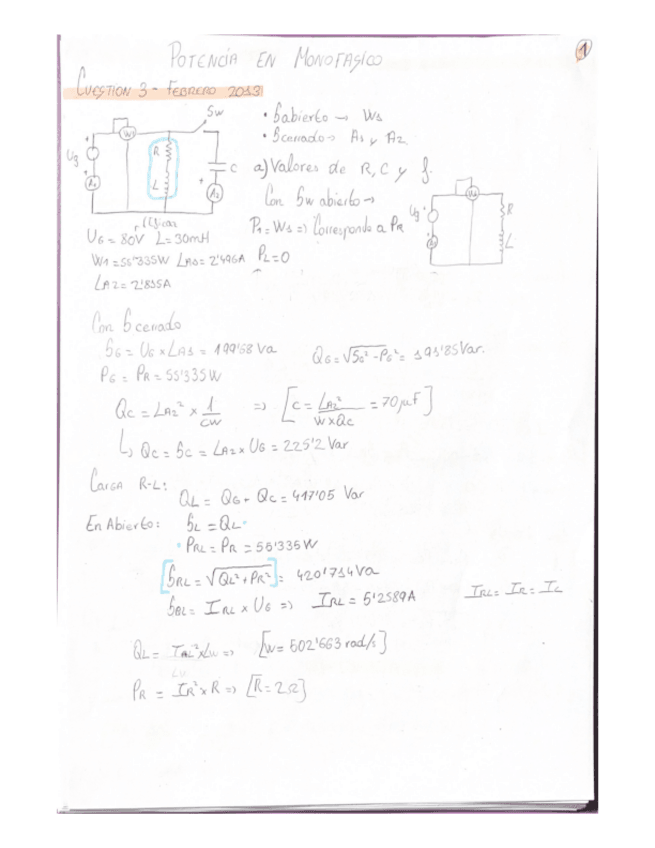 1
POTENCIA EN MONOFASICO
CUESTION 3 - FEBRERO 2013
Sw
W1
R
L
C
Ug
A1
A2
• Sabierto → W1
• Scerrado → A1 y A2
a) Valores de R, C y f.
Con Sw abierto →
P1 = W1 => Corresponde a PR
PL = 0
Ug
R
L
UG = 80V L = 30mH
W1 = 55'335W LA1 = 2'496A
LA2 = 2'815A
Con S cerrado
SG = UG x LA1 = 199'68 Va
QG = √SG² - PG² = 191'85 Var.
PG = PR = 55'335W
QC = LA2² x 1/CW => [C = LA2²/W x QC = 70 μF]
↳ QC = SC = LA2 x UG = 225'2 Var
Carga R-L:
QL = QG + QC = 417'05 Var
En Abierto: SL = QL
• PRL = PR = 55'335W
[SRL = √QL² + PR²] = 420'714 Va
SRL = IRL x UG => IRL = 5'2589A
IRL = IR = IL
QL = IRL² x LW => [W = 502'663 rad/s]
PR = IR² x R => [R = 2Ω]